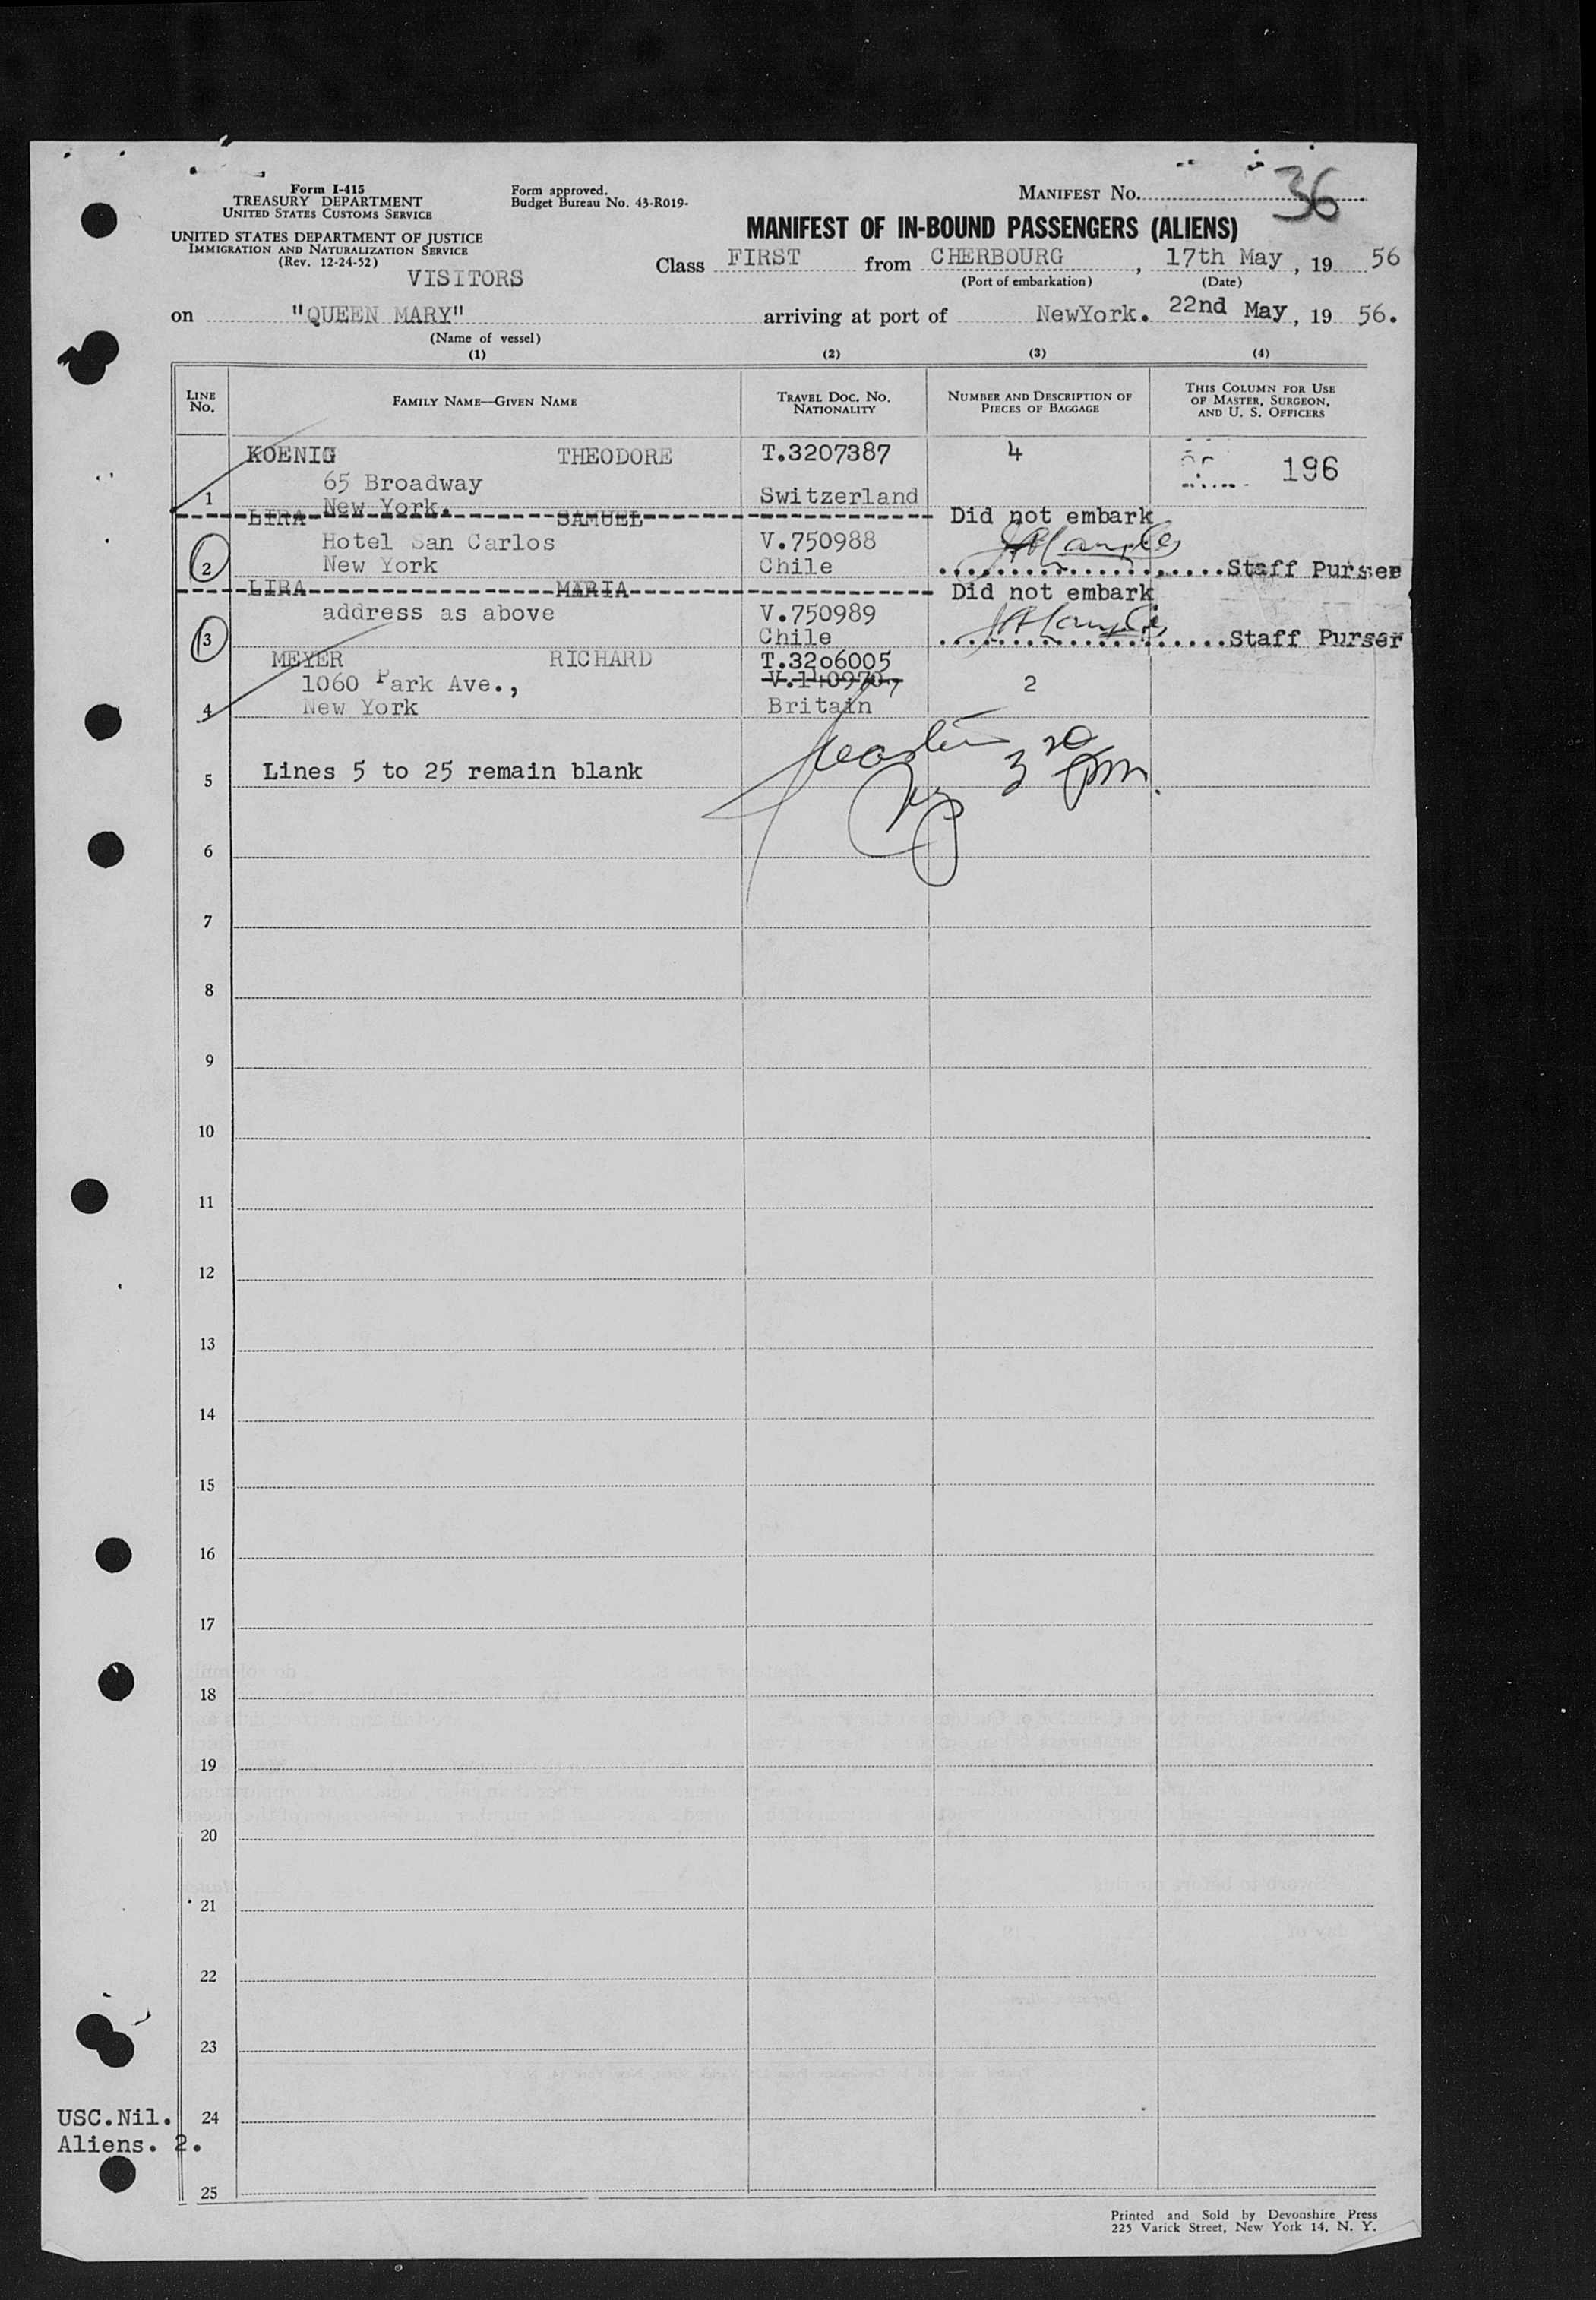 Form I-415
TREASURY DEPARTMENT
UNITED STATES CUSTOMS SERVICE
UNITED STATES DEPARTMENT OF JUSTICE
IMMIGRATION AND NATURALIZATION SERVICE
(Rev. 12-24-52)
Form approved.
Budget Bureau No. 43-R019-
MANIFEST NO. 36
MANIFEST OF IN-BOUND PASSENGERS (ALIENS)
VISITORS
Class FIRST from CHERBOURG, 17th May, 19 56
(Port of embarkation) (Date)
on "QUEEN MARY" arriving at port of NewYork. 22nd May, 19 56.
(Name of vessel)
(1) (2) (3) (4)
LINE No.
FAMILY NAME—GIVEN NAME
TRAVEL DOC. NO. NATIONALITY
NUMBER AND DESCRIPTION OF PIECES OF BAGGAGE
THIS COLUMN FOR USE OF MASTER, SURGEON, AND U. S. OFFICERS
KOENIG THEODORE T.3207387 4 196
65 Broadway
1 New York. Switzerland
LIRA SAMUEL Did not embark
Hotel San Carlos V.750988
2 New York Chile Staff Purser
LIRA MARIA Did not embark
address as above V.750989
3 Chile Staff Purser
MEYER RICHARD T.3206005
1060 Park Ave., V.140970 2
4 New York Britain
3 20 pm.
5 Lines 5 to 25 remain blank
6
7
8
9
10
11
12
13
14
15
16
17
18
19
20
21
22
23
USC.Nil. 24
Aliens. 2.
25
Printed and Sold by Devonshire Press
225 Varick Street, New York 14, N. Y.